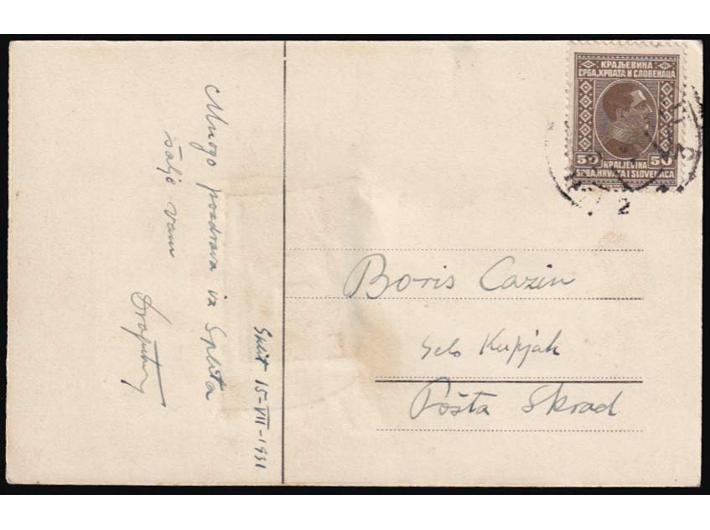 Mnogo pozdrava iz Splita
šalje vam
Split 15-VII-1931
КРАЉЕВИНА
СРБА, ХРВАТА И СЛОВЕНАЦА
50 50
KRALJEVINA
SRBA, HRVATA I SLOVENACA
2
Boris Cazin
selo Kupjak
Pošta Skrad